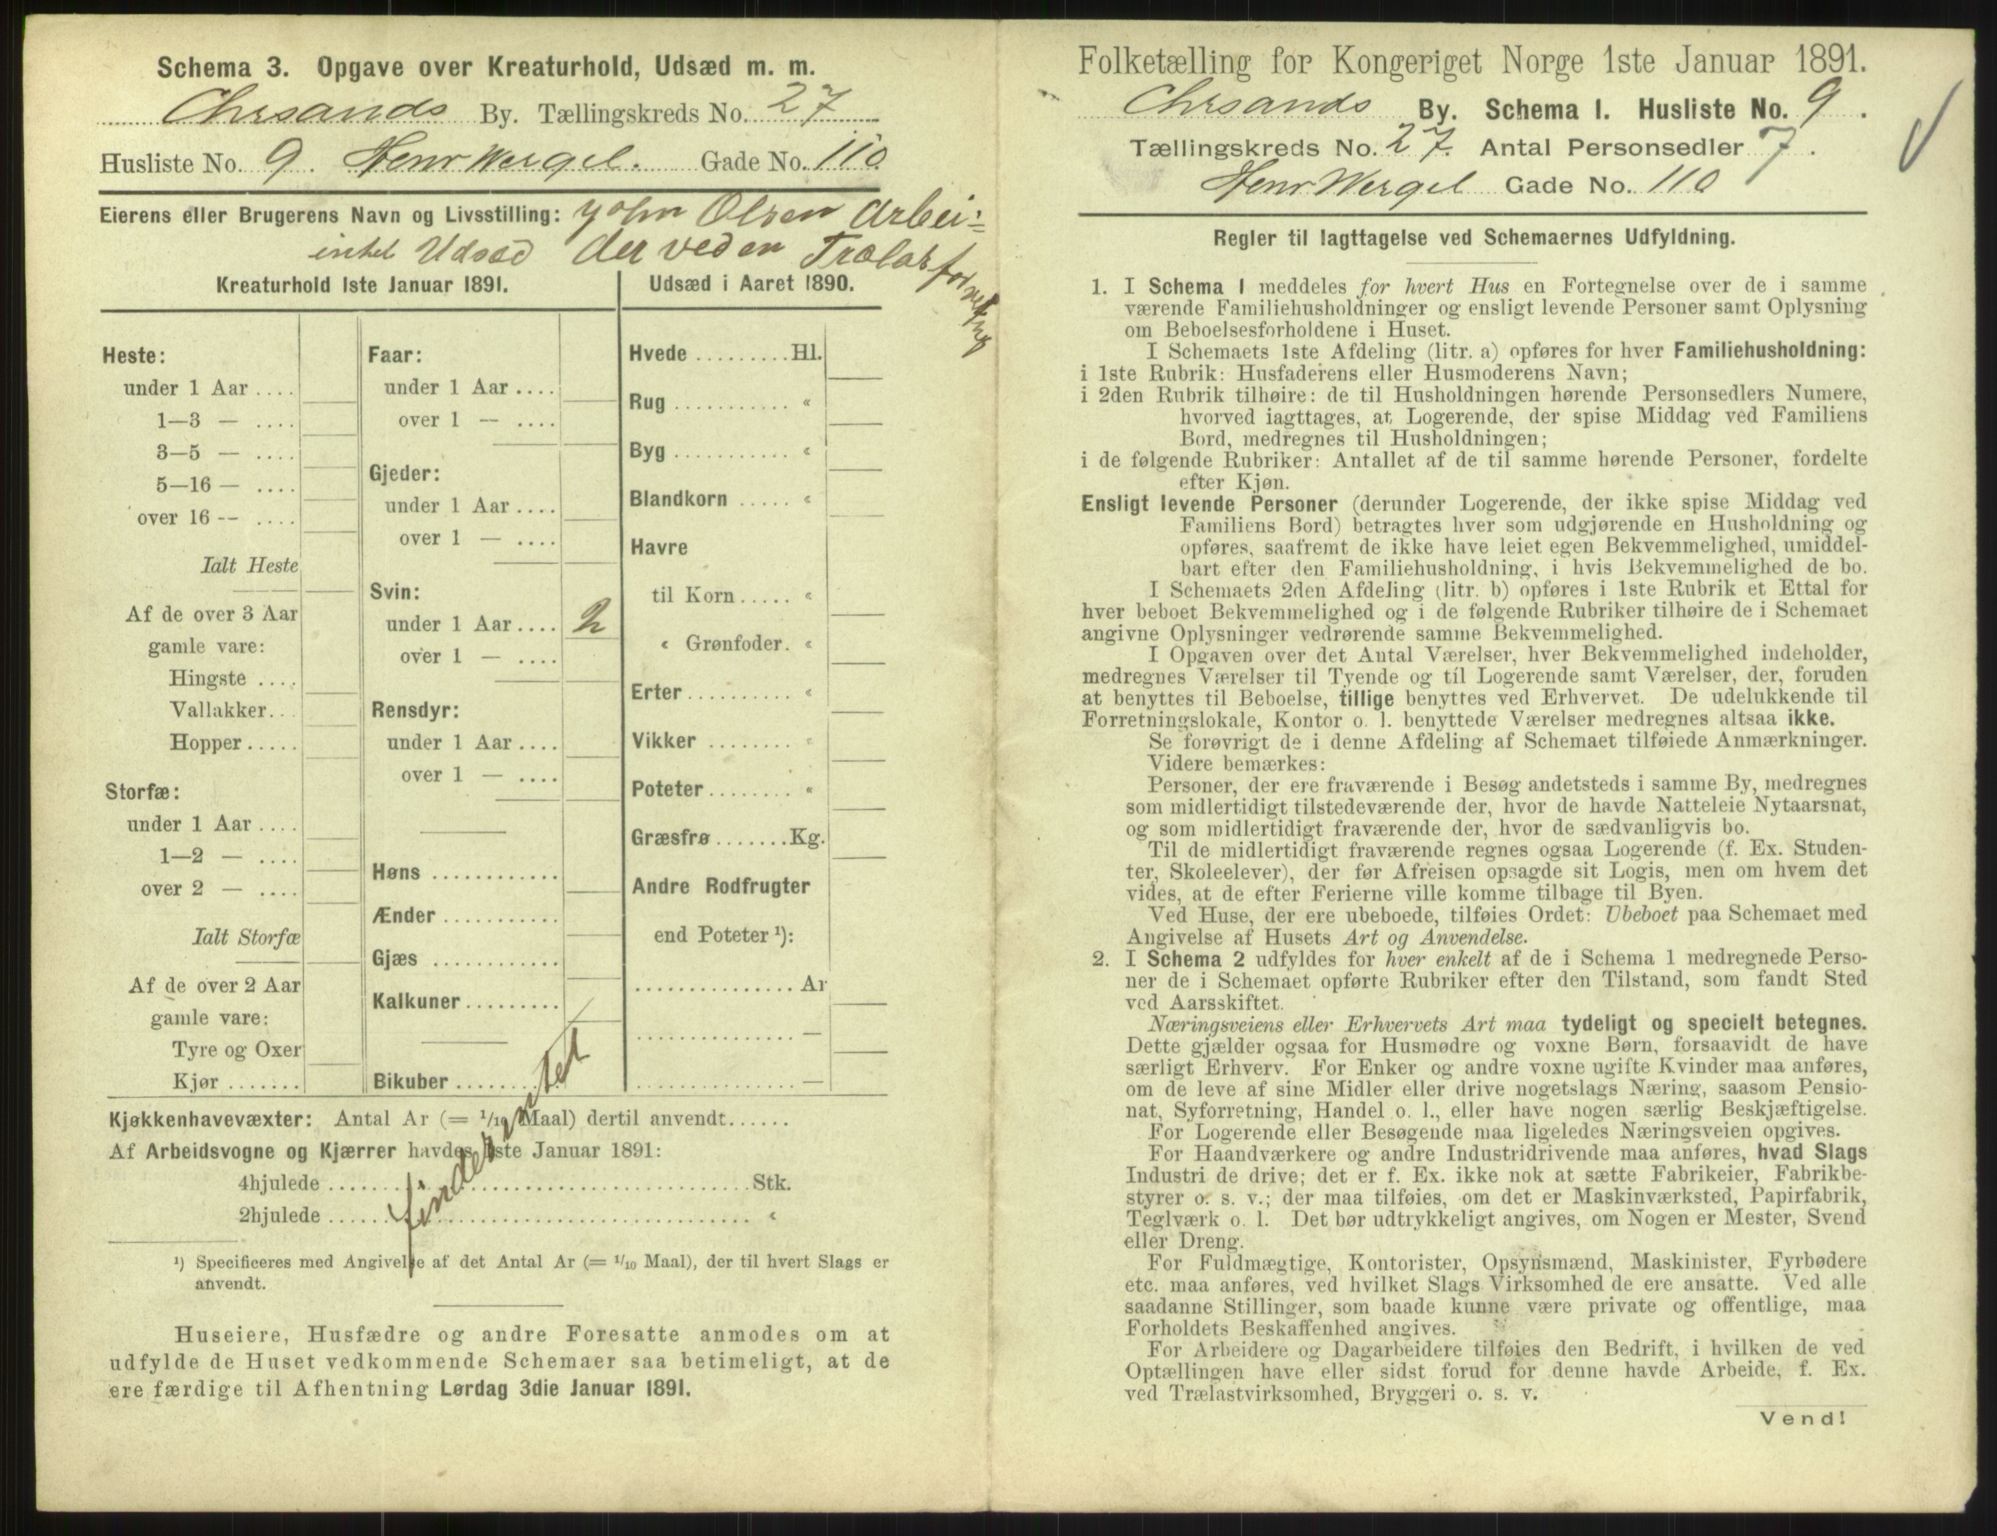 Schema 3. Opgave over Kreaturhold, Udsæd m. m.
Chrsands By. Tællingskreds No. 27
Husliste No. 9. Henr Wergel. Gade No. 110
Eierens eller Brugerens Navn og Livsstilling: John Olsen Arbei-
intet Udsæd der ved en
Kreaturhold 1ste Januar 1891.
Heste:
under 1 Aar ....
1—3 — ....
3—5 — ....
5—16 — ....
over 16 -- ....
Ialt Heste
Af de over 3 Aar
gamle vare:
Hingste ....
Vallakker...
Hopper.....
Storfæ:
under 1 Aar ....
1—2 — ....
over 2 — ....
Ialt Storfæ
Af de over 2 Aar
gamle vare:
Tyre og Oxer
Kjør .......
Faar:
under 1 Aar ....
over 1 — ....
Gjeder:
under 1 Aar ....
over 1 — ....
Svin:
under 1 Aar .... 2
over 1 — ....
Rensdyr:
under 1 Aar ....
over 1 — ....
Høns ............
Ænder ...........
Gjæs ............
Kalkuner .........
Bikuber .........
Udsæd i Aaret 1890.
Hvede .........Hl.
Rug ........... «
Byg ........... «
Blandkorn ..... «
Havre
til Korn ..... «
« Grønfoder. «
Erter .......... «
Vikker ........ «
Poteter ........ «
Græsfrø .......Kg.
Andre Rodfrugter
end Poteter ¹):
............... Ar
............... —
............... —
Kjøkkenhavevæxter: Antal Ar (= 1/10 Maal) dertil anvendt......
Af Arbeidsvogne og Kjærrer havdes 1ste Januar 1891:
4hjulede ........................................Stk.
2hjulede ........................................ «
¹) Specificeres med Angivelse af det Antal Ar (= 1/10 Maal), der til hvert Slags er
anvendt.
Huseiere, Husfædre og andre Foresatte anmodes om at
udfylde de Huset vedkommende Schemaer saa betimeligt, at de
ere færdige til Afhentning Lørdag 3die Januar 1891.
Folketælling for Kongeriget Norge 1ste Januar 1891.
Chrsands By. Schema I. Husliste No. 9.
Tællingskreds No. 27. Antal Personsedler 7.
Henr Wergel Gade No. 110
Regler til Iagttagelse ved Schemaernes Udfyldning.
1. I Schema I meddeles for hvert Hus en Fortegnelse over de i samme
værende Familiehusholdninger og ensligt levende Personer samt Oplysning
om Beboelsesforholdene i Huset.
I Schemaets 1ste Afdeling (litr. a) opføres for hver Familiehusholdning:
i 1ste Rubrik: Husfaderens eller Husmoderens Navn;
i 2den Rubrik tilhøire: de til Husholdningen hørende Personsedlers Numere,
hvorved iagttages, at Logerende, der spise Middag ved Familiens
Bord, medregnes til Husholdningen;
i de følgende Rubriker: Antallet af de til samme hørende Personer, fordelte
efter Kjøn.
Ensligt levende Personer (derunder Logerende, der ikke spise Middag ved
Familiens Bord) betragtes hver som udgjørende en Husholdning og
opføres, saafremt de ikke have leiet egen Bekvemmelighed, umiddel-
bart efter den Familiehusholdning, i hvis Bekvemmelighed de bo.
I Schemaets 2den Afdeling (litr. b) opføres i 1ste Rubrik et Ettal for
hver beboet Bekvemmelighed og i de følgende Rubriker tilhøire de i Schemaet
angivne Oplysninger vedrørende samme Bekvemmelighed.
I Opgaven over det Antal Værelser, hver Bekvemmelighed indeholder,
medregnes Værelser til Tyende og til Logerende samt Værelser, der, foruden
at benyttes til Beboelse, tillige benyttes ved Erhvervet. De udelukkende til
Forretningslokale, Kontor o. l. benyttede Værelser medregnes altsaa ikke.
Se forøvrigt de i denne Afdeling af Schemaet tilføiede Anmærkninger.
Videre bemærkes:
Personer, der ere fraværende i Besøg andetsteds i samme By, medregnes
som midlertidigt tilstedeværende der, hvor de havde Natteleie Nytaarsnat,
og som midlertidigt fraværende der, hvor de sædvanligvis bo.
Til de midlertidigt fraværende regnes ogsaa Logerende (f. Ex. Studen-
ter, Skoleelever), der før Afreisen opsagde sit Logis, men om hvem det
vides, at de efter Ferierne ville komme tilbage til Byen.
Ved Huse, der ere ubeboede, tilføies Ordet: Ubeboet paa Schemaet med
Angivelse af Husets Art og Anvendelse.
2. I Schema 2 udfyldes for hver enkelt af de i Schema 1 medregnede Perso-
ner de i Schemaet opførte Rubriker efter den Tilstand, som fandt Sted
ved Aarsskiftet.
Næringsveiens eller Erhvervets Art maa tydeligt og specielt betegnes.
Dette gjælder ogsaa for Husmødre og voxne Børn, forsaavidt de have
særligt Erhverv. For Enker og andre voxne ugifte Kvinder maa anføres,
om de leve af sine Midler eller drive nogetslags Næring, saasom Pensio-
nat, Syforretning, Handel o. l., eller have nogen særlig Beskjæftigelse.
For Logerende eller Besøgende maa ligeledes Næringsveien opgives.
For Haandværkere og andre Industridrivende maa anføres, hvad Slags
Industri de drive; det er f. Ex. ikke nok at sætte Fabrikeier, Fabrikbe-
styrer o. s. v.; der maa tilføies, om det er Maskinværksted, Papirfabrik,
Teglværk o. l. Det bør udtrykkeligt angives, om Nogen er Mester, Svend
eller Dreng.
For Fuldmægtige, Kontorister, Opsynsmænd, Maskinister, Fyrbødere
etc. maa anføres, ved hvilket Slags Virksomhed de ere ansatte. Ved alle
saadanne Stillinger, som baade kunne være private og offentlige, maa
Forholdets Beskaffenhed angives.
For Arbeidere og Dagarbeidere tilføies den Bedrift, i hvilken de ved
Optællingen have eller sidst forud for denne havde Arbeide, f. Ex.
ved Trælastvirksomhed, Bryggeri o. s. v.
Vend!